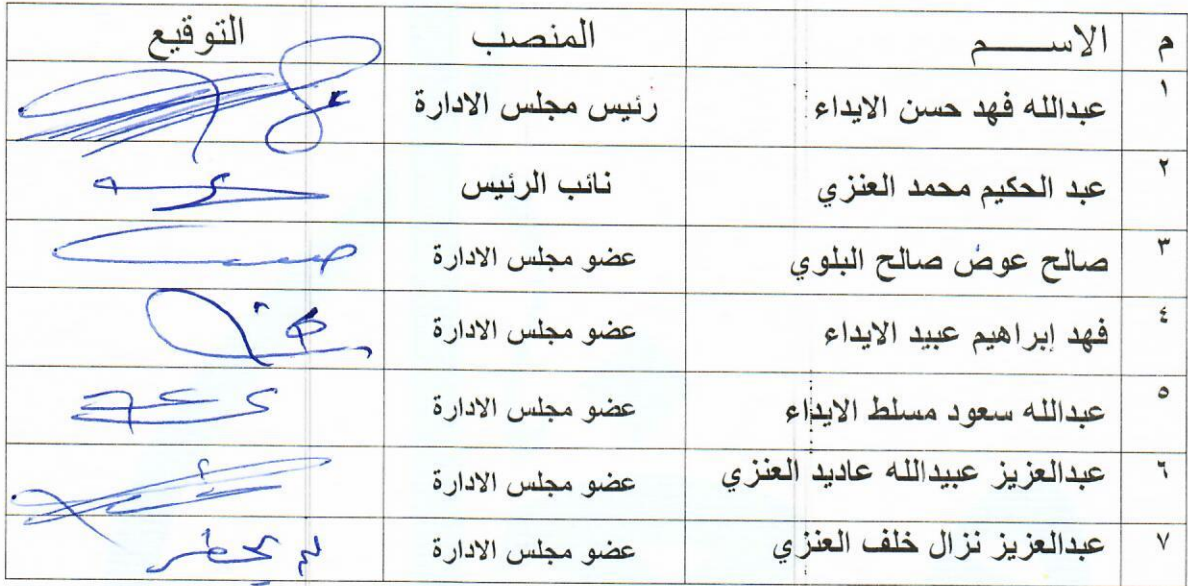 م الاســـــم المنصب التوقيع
١ عبدالله فهد حسن الايداء رئيس مجلس الادارة
٢ عبد الحكيم محمد العنزي نائب الرئيس
٣ صالح عوض صالح البلوي عضو مجلس الادارة
٤ فهد إبراهيم عبيد الايداء عضو مجلس الادارة
٥ عبدالله سعود مسلط الايداء عضو مجلس الادارة
٦ عبدالعزيز عبيدالله عاديد العنزي عضو مجلس الادارة
٧ عبدالعزيز نزال خلف العنزي عضو مجلس الادارة لم يحظر